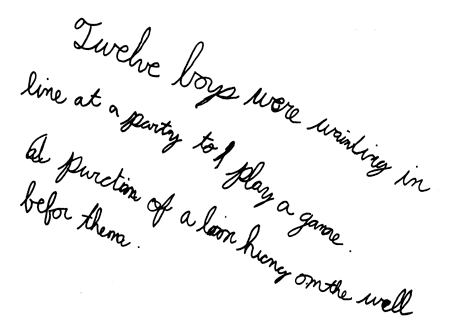 Twelve boys were wainting in
line at a party to play a game.
A purction of a lion hung on the well
befor them.